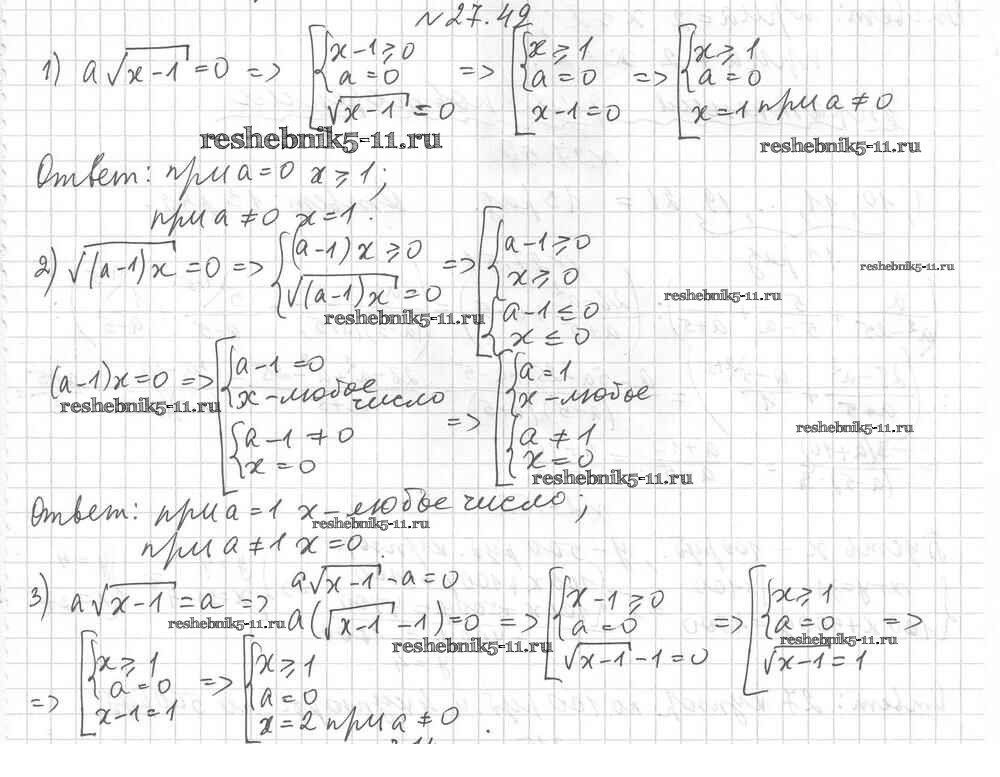 №27.42
1) a√(x-1) = 0 => [ { x-1 ≥ 0 a = 0 √(x-1) = 0 => [ { x ≥ 1 a = 0 x-1 = 0 => [ { x ≥ 1 a = 0 x = 1 при a ≠ 0
reshebnik5-11.ru
reshebnik5-11.ru
Ответ: при a = 0 x ≥ 1;
при a ≠ 0 x = 1.
2) √((a-1)x) = 0 => { (a-1)x ≥ 0 √((a-1)x) = 0 => [ { a-1 ≥ 0 x ≥ 0 { a-1 ≤ 0 x ≤ 0
reshebnik5-11.ru
reshebnik5-11.ru
reshebnik5-11.ru
(a-1)x = 0 => [ { a-1 = 0 x - любое число { a-1 ≠ 0 x = 0 => [ { a = 1 x - любое { a ≠ 1 x = 0
reshebnik5-11.ru
reshebnik5-11.ru
reshebnik5-11.ru
Ответ: при a = 1 x - любое число;
reshebnik5-11.ru
при a ≠ 1 x = 0.
3) a√(x-1) = a => a√(x-1) - a = 0
a(√(x-1) - 1) = 0 => [ { x-1 ≥ 0 a = 0 √(x-1) - 1 = 0 => [ { x ≥ 1 a = 0 √(x-1) = 1 =>
reshebnik5-11.ru
reshebnik5-11.ru
reshebnik5-11.ru
=> [ { x ≥ 1 a = 0 x-1 = 1 => [ { x ≥ 1 a = 0 x = 2 при a ≠ 0.